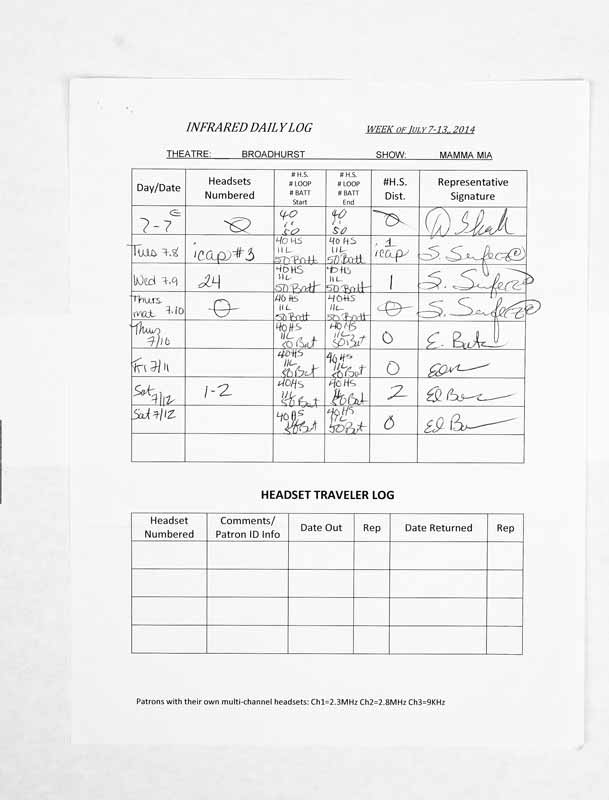 INFRARED DAILY LOG WEEK OF JULY 7-13, 2014
THEATRE: BROADHURST SHOW: MAMMA MIA
Day/Date Headsets Numbered # H.S. # LOOP # BATT Start # H.S. # LOOP # BATT End #H.S. Dist. Representative Signature
7-7 E 0 40 11 50 40 11 50 0
Tues 7.8 icap #3 40 HS 11L 50 Batt 40 HS 11L 50 Batt 1 icap
Wed 7.9 24 40 HS 11L 50 Batt 40 HS 11L 50 Batt 1
Thurs mat 7.10 0 40 HS 11L 50 Batt 40 HS 11L 50 Batt 0
Thur 7/10 40HS 11L 50 Bat 40HS 11L 50 Bat 0
Fri 7/11 40HS 11L 50 Bat 40HS 11L 50 Bat 0
Sat 7/12 1-2 40HS 11L 50 Bat 40HS 11L 50 Bat 2
Sat 7/12 40HS 11L 50 Bat 40HS 11L 50 Bat 0
HEADSET TRAVELER LOG
Headset Numbered Comments/ Patron ID Info Date Out Rep Date Returned Rep
Patrons with their own multi-channel headsets: Ch1=2.3MHz Ch2=2.8MHz Ch3=9KHz